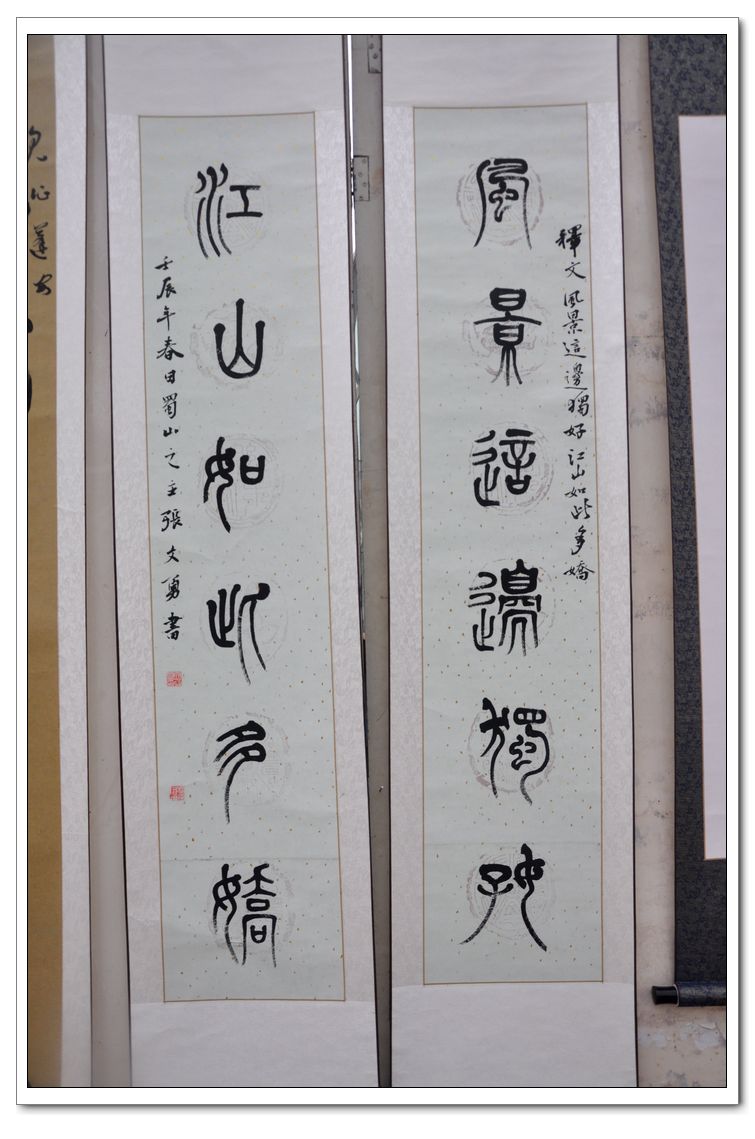 釋文風景這邊獨好江山如此多嬌
風景這邊獨好
江山如此多嬌
壬辰年春日蜀山之主張文勇書